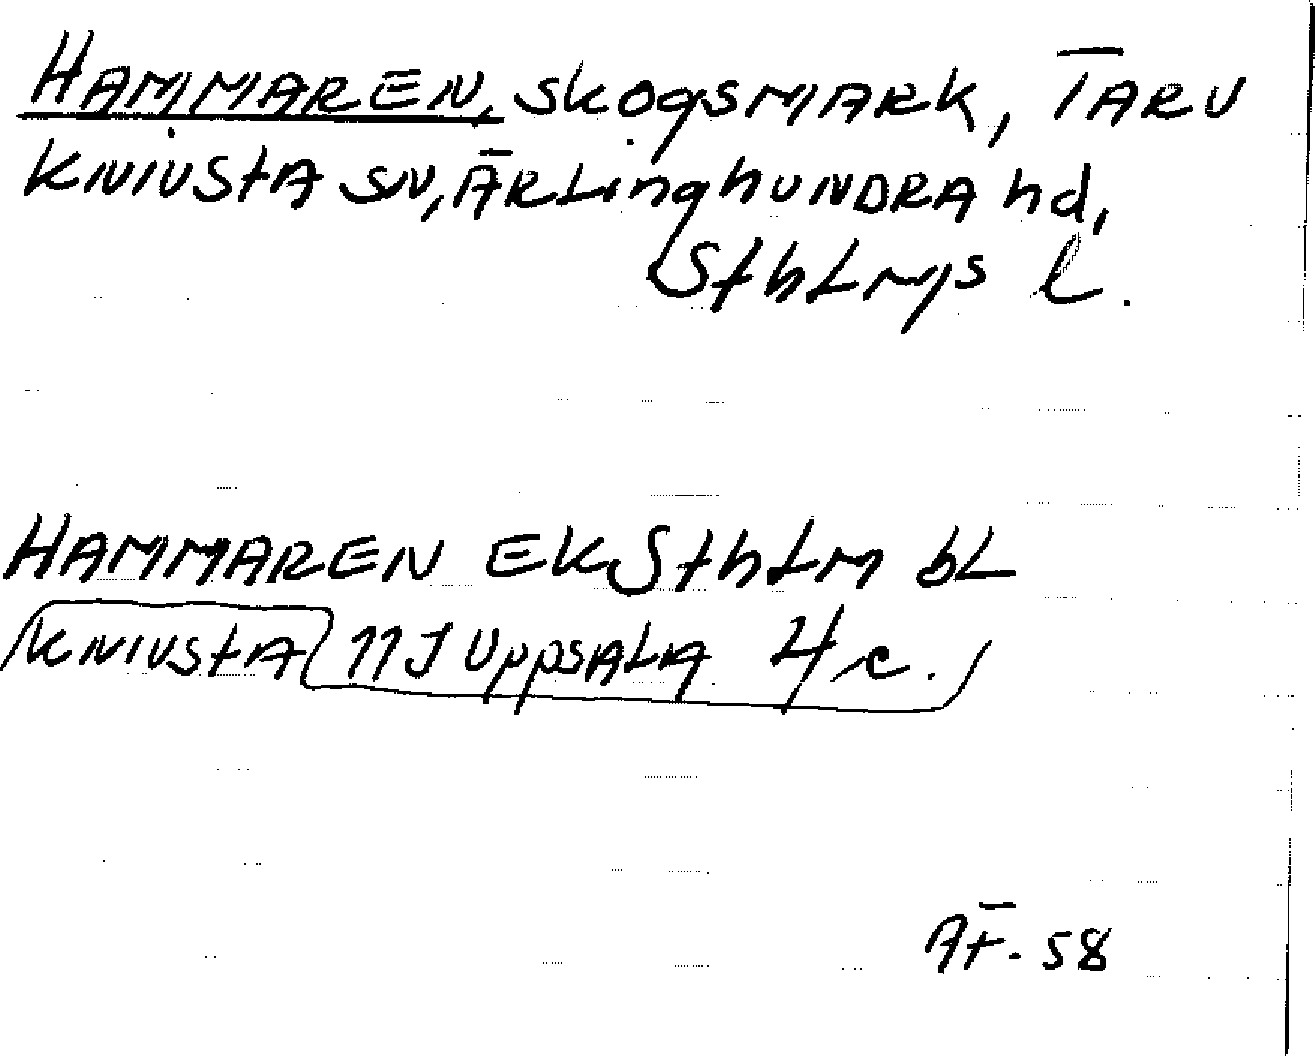 HAMMAREN, SKOGSMARK, TARV
KNIVSTA SN, ÄRLINGHUNDRA hd,
Sthlms l.
HAMMAREN EK Sthlm bl
KNIVSTA 11 J Uppsala 4 c.
AF. 58